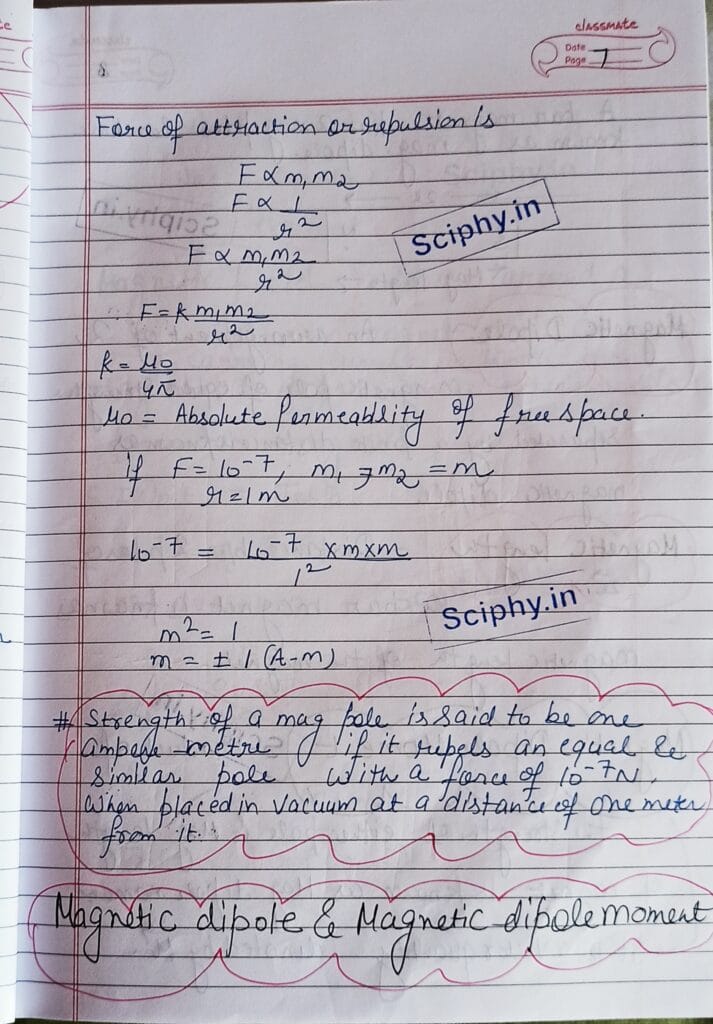 classmate
Date
Page 7
Force of attraction or repulsion is
F ∝ m₁m₂
F ∝ 1/r²
F ∝ m₁m₂/r²
Sciphy.in
∴ F = k m₁m₂/r²
k = μ₀/4π
μ₀ = Absolute Permeability of free space.
if F = 10⁻⁷, m₁ = m₂ = m
r = 1m
10⁻⁷ = 10⁻⁷ x m x m / 1²
Sciphy.in
m² = 1
m = ± 1 (A-m)
# Strength of a mag pole is said to be one
ampere-metre if it repels an equal &
similar pole with a force of 10⁻⁷N,
when placed in vacuum at a distance of one meter
from it.
Magnetic dipole & Magnetic dipole moment